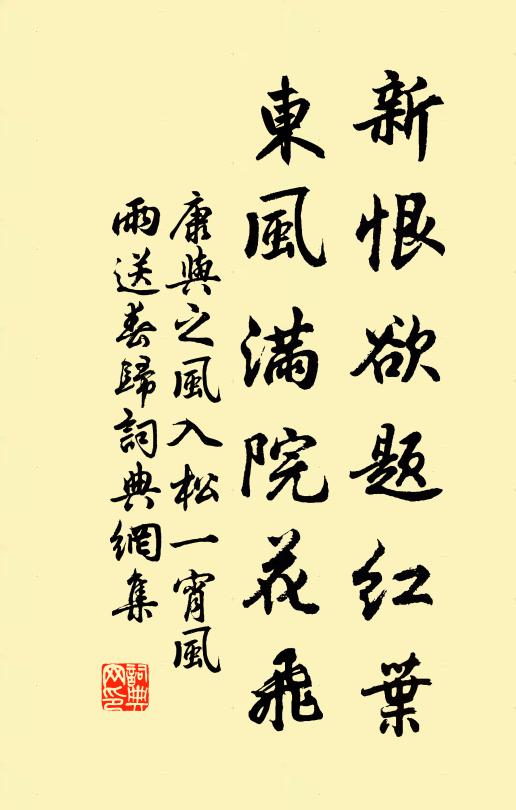 新恨欲题红葉
東風满院花飛
康與之風入松一宵風
雨送春歸詞典網集
詞典
网印